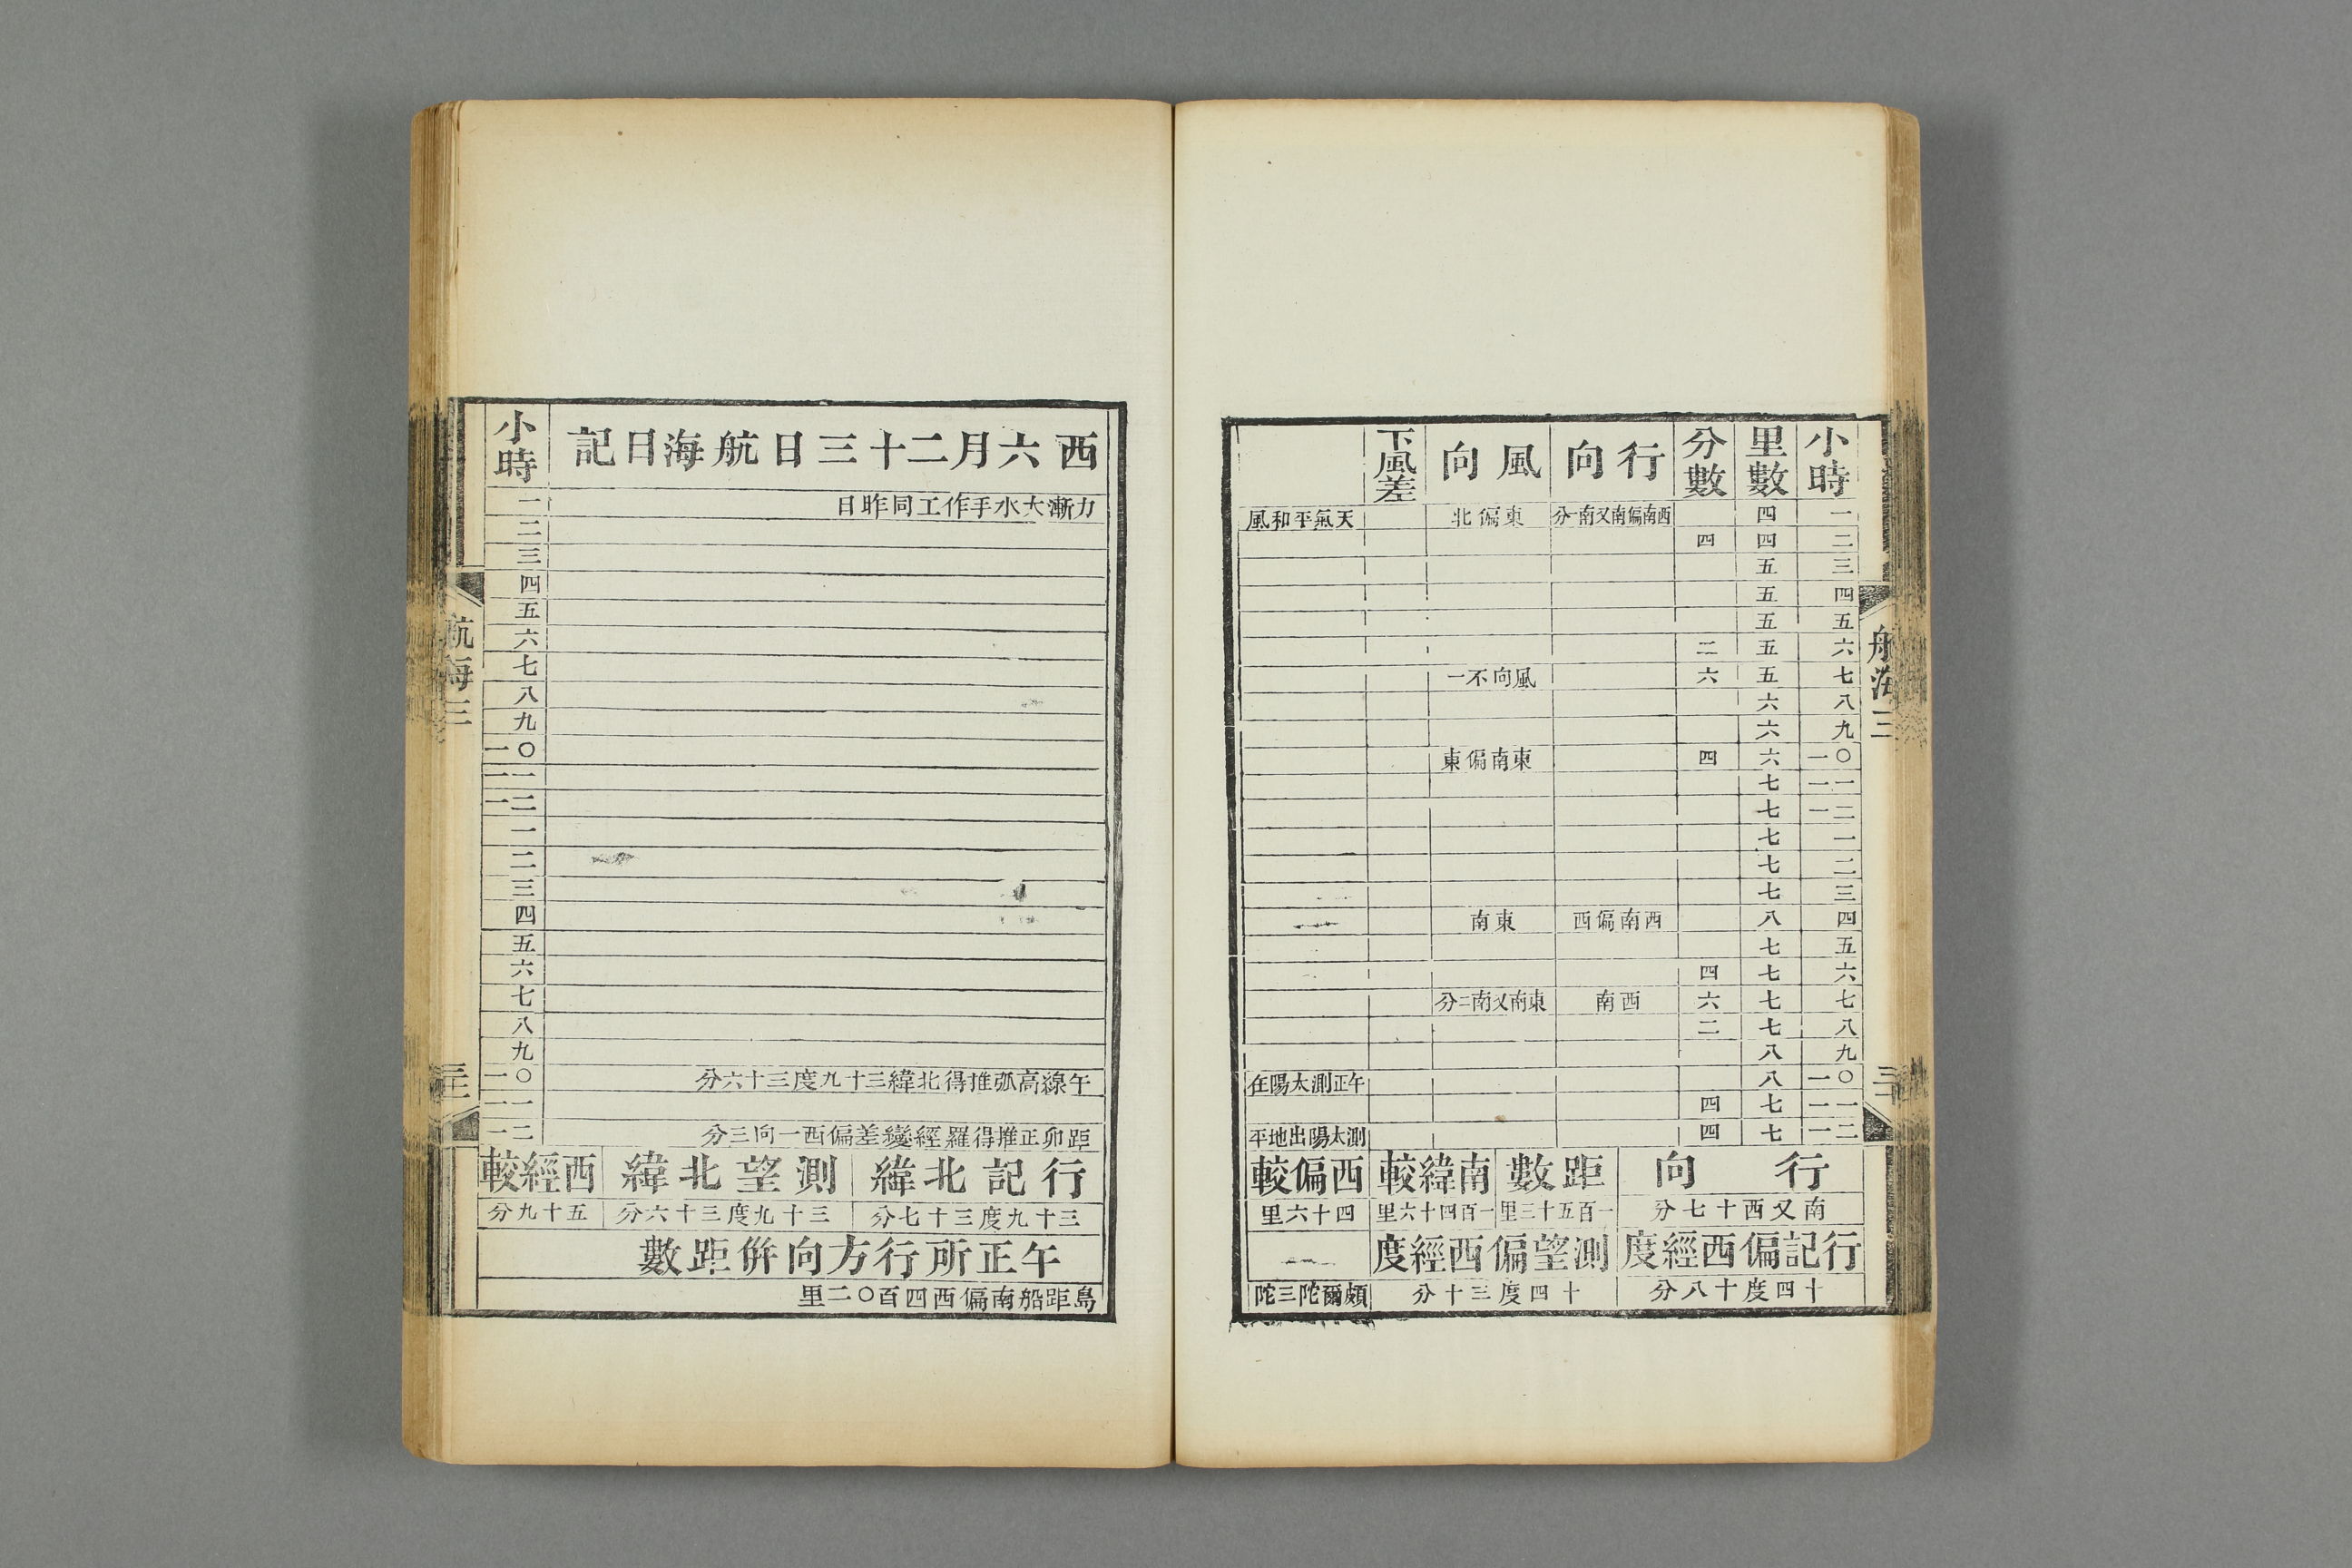 航海三
三十
小時 里數 分數 行向 風向 下風差
一 四 西南偏南又南一分 東偏北 天氣平和風
二 四 四
三 五
四 五
五 五
六 五 二
七 五 六 風向不一
八 六
九 六
一〇 六 四 東南偏東
一一 七
一二 七
一 七
二 七
三 七
四 八 西南偏西 東南
五 七
六 七 四
七 七 六 西南 東南又南二分
八 七 二
九 八
一〇 八 午正測太陽在
一一 七 四
一二 七 四 測太陽出地平
行向 距數 南緯較 西偏較
南又西十七分 一百五十三里 一百四十六里 四十六里
行記偏西經度 測望偏西經度
十四度十八分 十四度三十分 頗爾陀三陀
西六月二十三日航海日記 小時
力漸大水手作工同昨日 一
二
三
四
五
六
七
八
九
一〇
一一
一二
一
二
三
四
五
六
七
八
九
午線高弧推得北緯三十九度三十六分 一〇
一一
距卯正推得羅經變差偏西一向三分 一二
行記北緯 測望北緯 西經較
三十九度三十七分 三十九度三十六分 五十九分
午正所行方向併距數
島距船南偏西四百〇二里
航海三